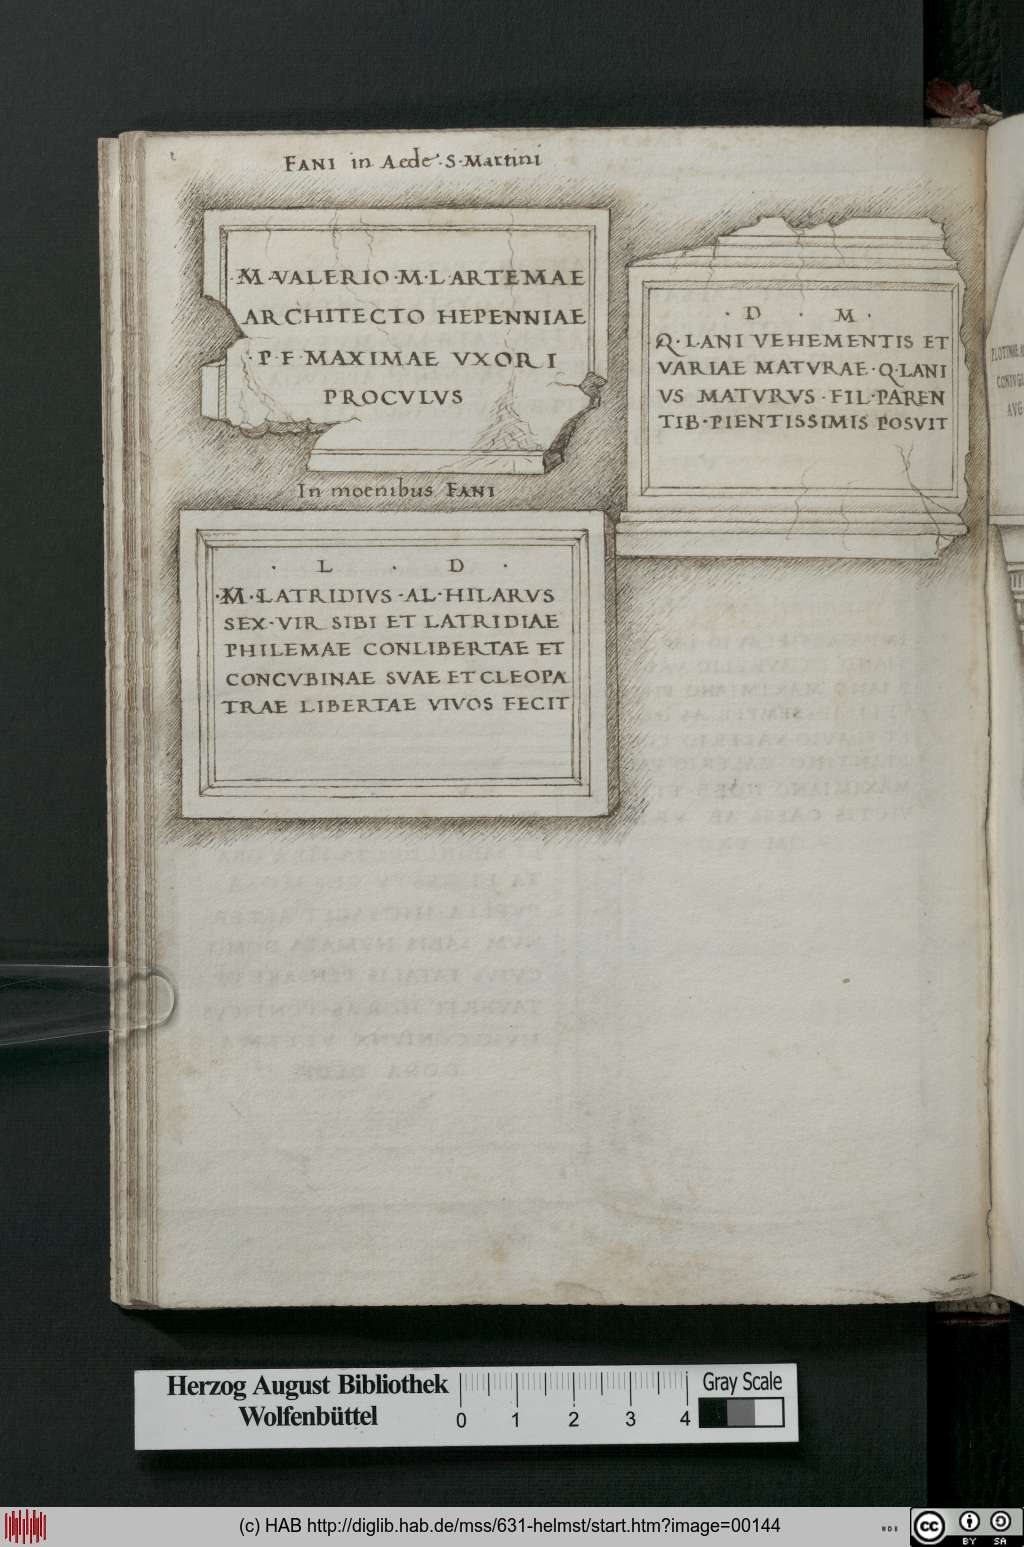 FANI in Aede · S · Martini
· M · VALERIO · M · L · ARTEMAE
ARCHITECTO HEPENNIAE
· P · F · MAXIMAE VXORI
PROCVLVS
· D · M ·
Q · LANI VEHEMENTIS ET
VARIAE MATVRAE · Q · LANI
VS MATVRVS · FIL · PAREN
TIB · PIENTISSIMIS POSVIT
In moenibus FANI
· L · D ·
· M · LATRIDIVS · AL · HILARVS
SEX · VIR SIBI ET LATRIDIAE
PHILEMAE CONLIBERTAE ET
CONCVBINAE SVAE ET CLEOPA
TRAE LIBERTAE VIVOS FECIT
CONIVGI
AVG
Herzog August Bibliothek
Wolfenbüttel
0 1 2 3 4
Gray Scale
(c) HAB http://diglib.hab.de/mss/631-helmst/start.htm?image=00144
WDB
cc
BY SA